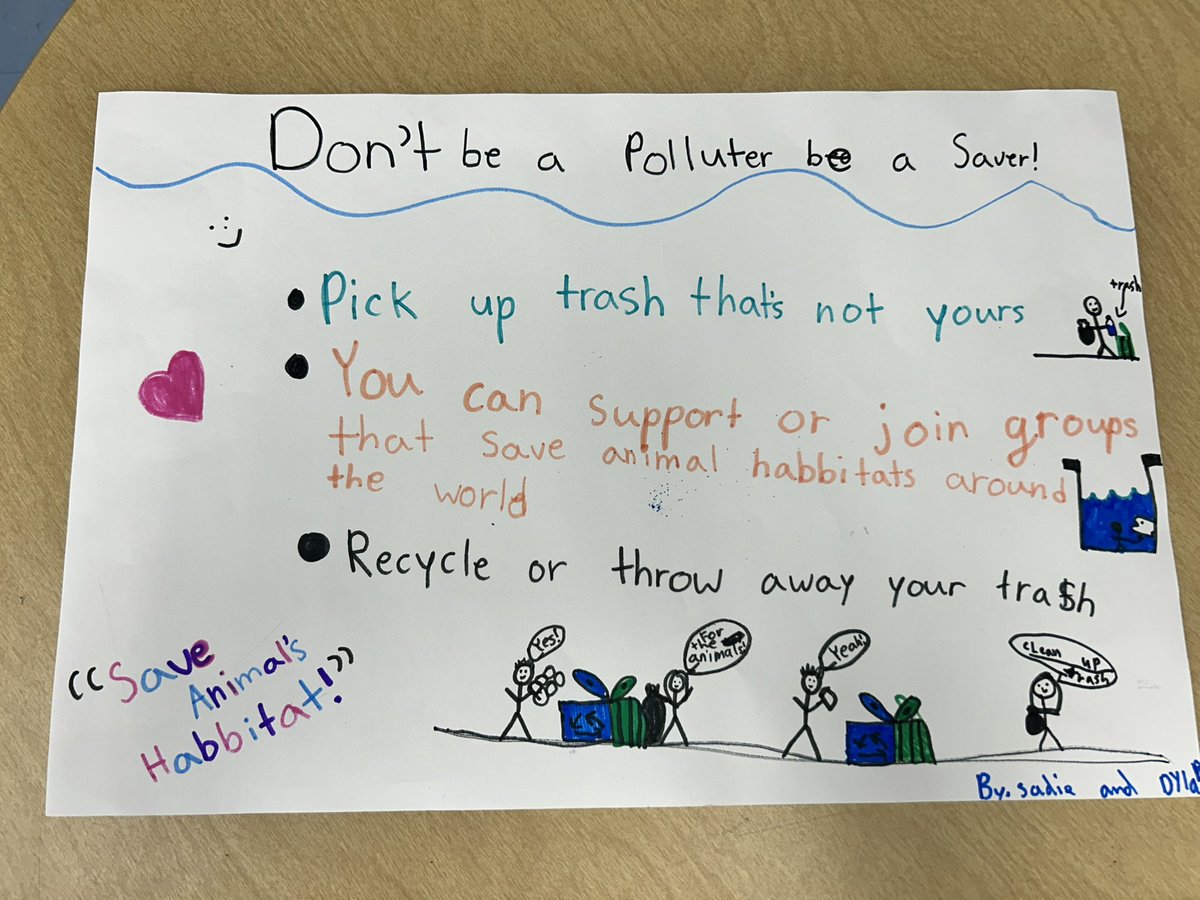 Don't be a Polluter be a Saver!
• Pick up trash that's not yours
trash
• You can support or join groups
that save animal habbitats around
the world
• Recycle or throw away your tra$h
"Save
Animal's
Habbitat!"
Yes!
For
the
animals!
Yeah!
cLean up
trash
By. sadie and DYla